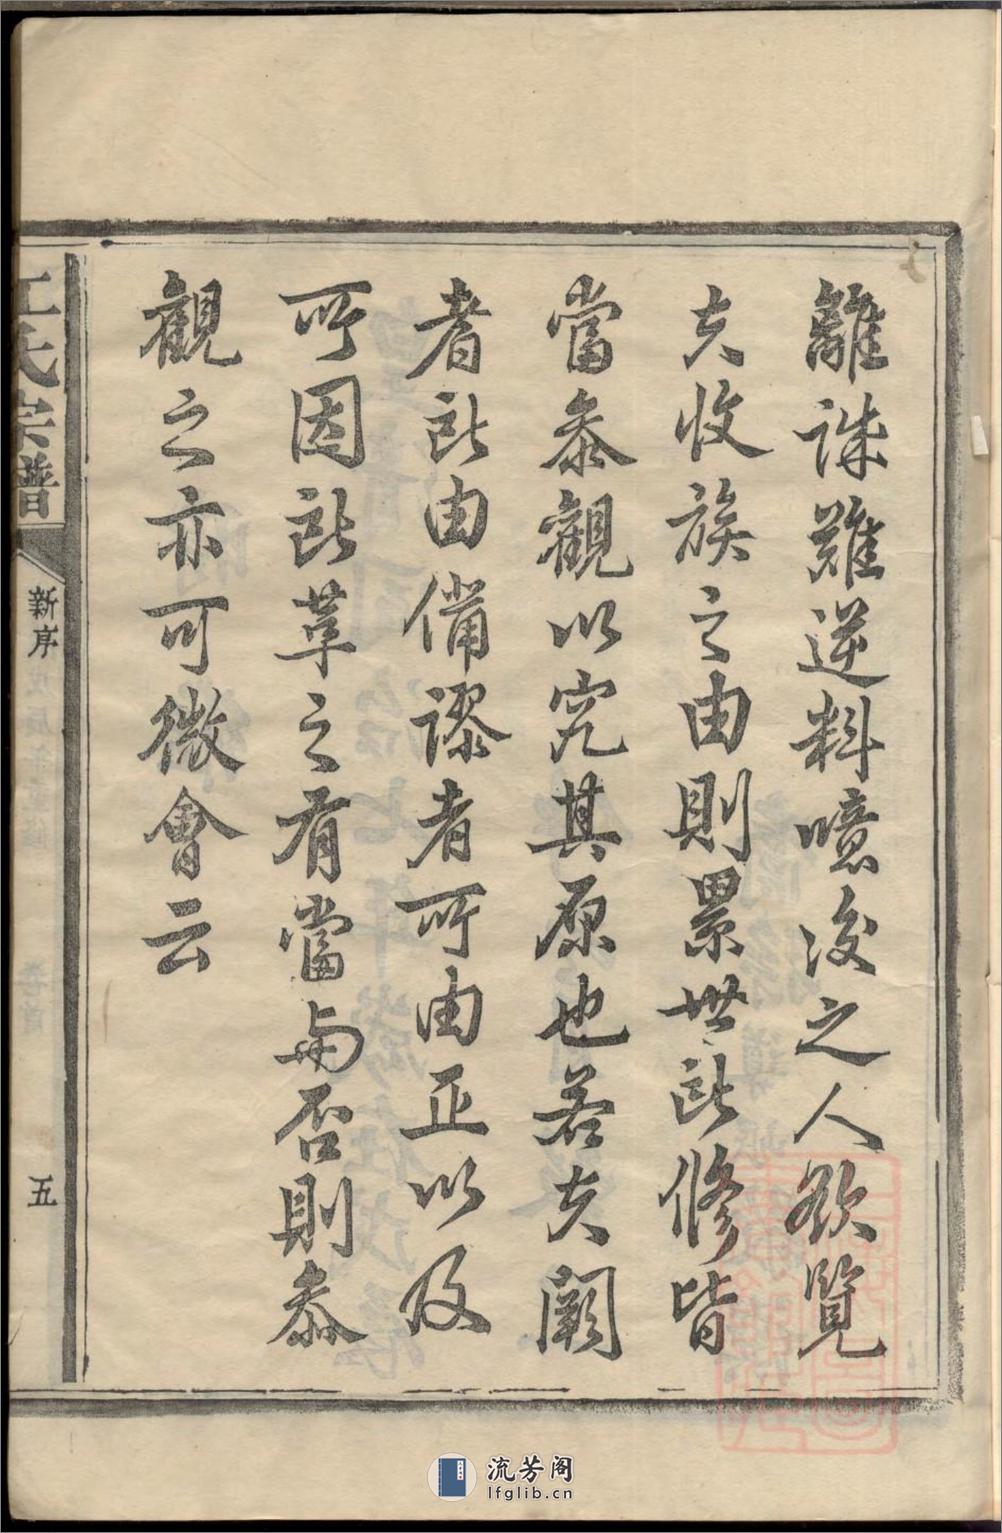 離誅難逆料噫後之人欲覽
夫收族之由則累世所修皆
當叅觀以究其原也若夫闕
者所由備謬者所由正以及
所因所革之有當與否則叅
觀之亦可微會云
氏宗譜
新序
五
流芳阁
lfglib.cn